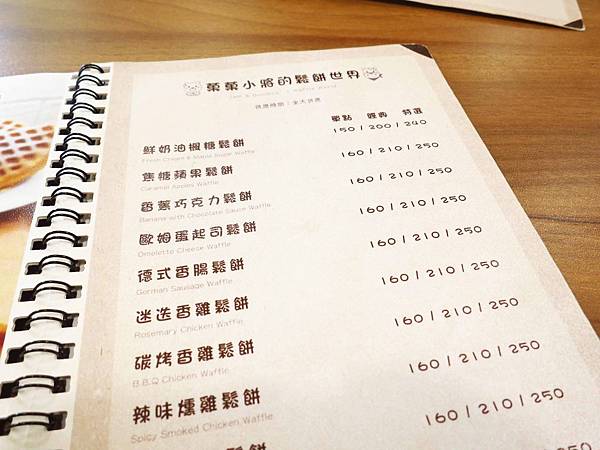 菓菓小將的鬆餅世界
供應時間：全天供應
單點 經典 特選
鮮奶油楓糖鬆餅 150 / 200 / 240
Fresh Cream & Maple Sugar Waffle
焦糖蘋果鬆餅 160 / 210 / 250
Caramel Apples Waffle
香蕉巧克力鬆餅 160 / 210 / 250
Banana with Chocolate Sauce Waffle
歐姆蛋起司鬆餅 160 / 210 / 250
Omelette Cheese Waffle
德式香腸鬆餅 160 / 210 / 250
German Sausage Waffle
迷迭香雞鬆餅 160 / 210 / 250
Rosemary Chicken Waffle
碳烤香雞鬆餅 160 / 210 / 250
B.B.Q Chicken Waffle
辣味燻雞鬆餅 160 / 210 / 250
Spicy Smoked Chicken Waffle